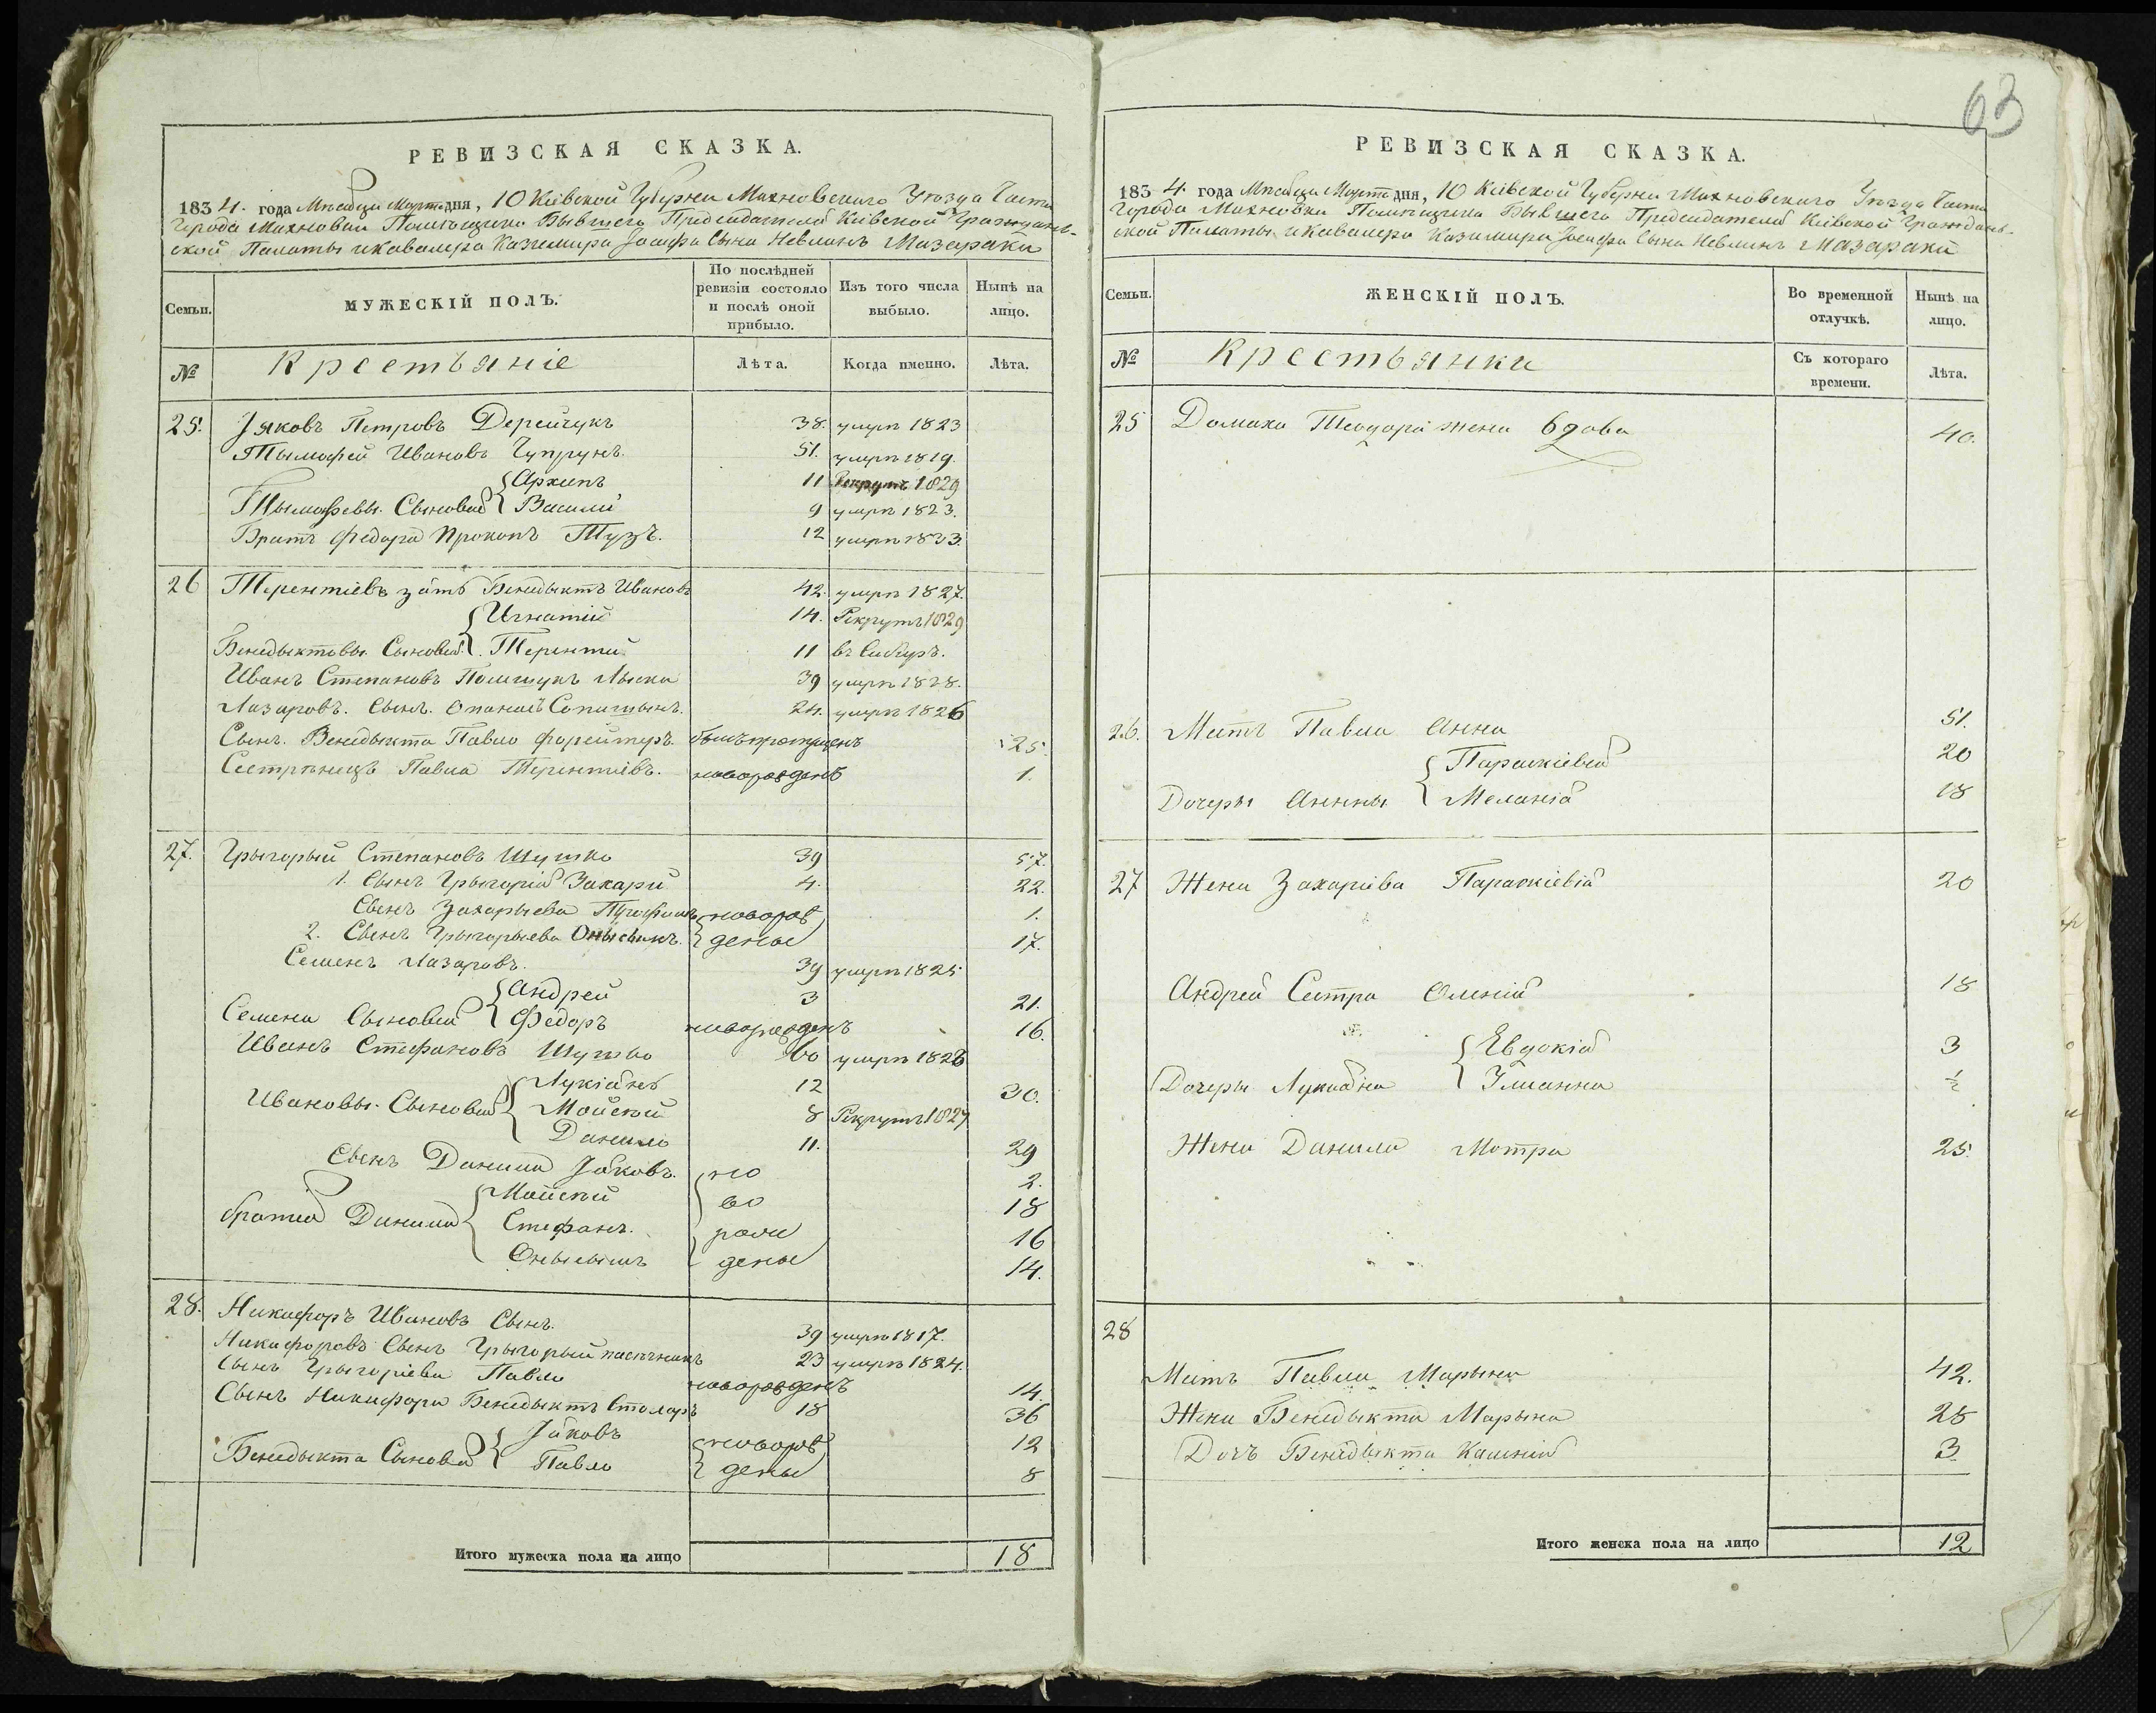 63
РЕВИЗСКАЯ СКАЗКА.
1834. года Мѣсяца Марта дня, 10 Кіевской Губерніи Махновскаго Уѣзда Части
Города Махновки Помѣщика Бывшего Предсидателя Кіевской Граждан-
ской Палаты и Кавалера Казимира Іосифа Сына Невлинъ Мазараки
Семьи.
МУЖЕСКІЙ ПОЛЪ.
По послѣдней ревизіи состояло и послѣ оной прибыло.
Изъ того числа выбыло.
Нынѣ на лицо.
№ Крестьяніе Лѣта. Когда именно. Лѣта.
25. Іяковъ Петровъ Дерейчукъ 38. умръ 1823
Тымофей Ивановъ Чупрунъ. 51. умръ 1819.
{Архипъ 11 Рекрутъ 1829
Тымофевы Сыновья { Василій 9 умръ 1823.
Братъ Федора Прокопъ Тузъ. 12 умръ 1823.
26 Терентіевъ зять Бенедыктъ Ивановъ 42. умръ 1827.
{Игнатій 14. Рекрутъ 1829
Бенедыктовы Сыновья { Терентій 11 въ Сибиръ.
Иванъ Степановъ Полищукъ Лыска 39 умръ 1828.
Лазаровъ. Сынъ. Опанасъ 24. умръ 1826
Сынъ. Венедыкта Павло форейтеръ. былъ пропущенъ 25.
Сестрѣнецъ Павла Терентіевъ. новорожденъ 1.
27. Грыгорый Степановъ Шушко 39 57.
1. Сынъ Грыгорія Захарій 4. 22.
Сынъ Захарыева новорож 1.
2. Сынъ Грыгорыева Онысымъ. { дены 17.
Семенъ Лазаровъ. 39 умръ 1825
{Андрей 3 21.
Семена Сыновья { Федоръ новорожденъ 16.
Иванъ Стефановъ Шушко 60 умръ 1826
{Лукіанъ 12 30.
Ивановы Сыновья { Мойсей 8 Рекрутъ 1827
Данило 11. 29
Сынъ Данила Іаковъ. { но 2.
{Мойсей во 18
братья Данила { Стефанъ. рож 16
Онысымъ { дены 14.
28. Никифоръ Ивановъ Сынъ. 39 умръ 1817.
Никифоровъ Сынъ Грыгорый пасечникъ 23 умръ 1824.
Сынъ Грыгоріева Павло новорожденъ 14.
Сынъ Никифора Бенедыктъ Столяръ 18 36
{ Іаковъ {новорож 12
Бенедыкта Сыновья { Павло { дены 8
Итого мужеска пола на лицо 18
РЕВИЗСКАЯ СКАЗКА.
1834. года Мѣсяца Марта дня, 10 Кіевской Губерніи Махновскаго Уѣзда Части
Города Махновки Помѣщика Бывшего Предсидателя Кіевской Граждан-
ской Палаты и Кавалера Казимира Іосифа Сына Невлинъ Мазараки
Семьи.
ЖЕНСКІЙ ПОЛЪ.
Во временной отлучкѣ.
Нынѣ на лицо.
№ Крестьянки Съ котораго времени. Лѣта.
25 Домаха Теодора жена вдова 40.
26. Мать Павла Анна 51.
{ Параскіевія 20
Дочеры Анны { Меланія 18
27 Жена Захаріева Параскіевія 20
Андрея Сестра Олена 18
{ Евдокія 3
Дочеры Лукіана { Улианна ½
Жена Данила Мотра 25.
28
Мать Павла Марына 42.
Жена Бенедыкта Марына 28
Дочъ Бенедыкта 3
Итого женска пола на лицо 12